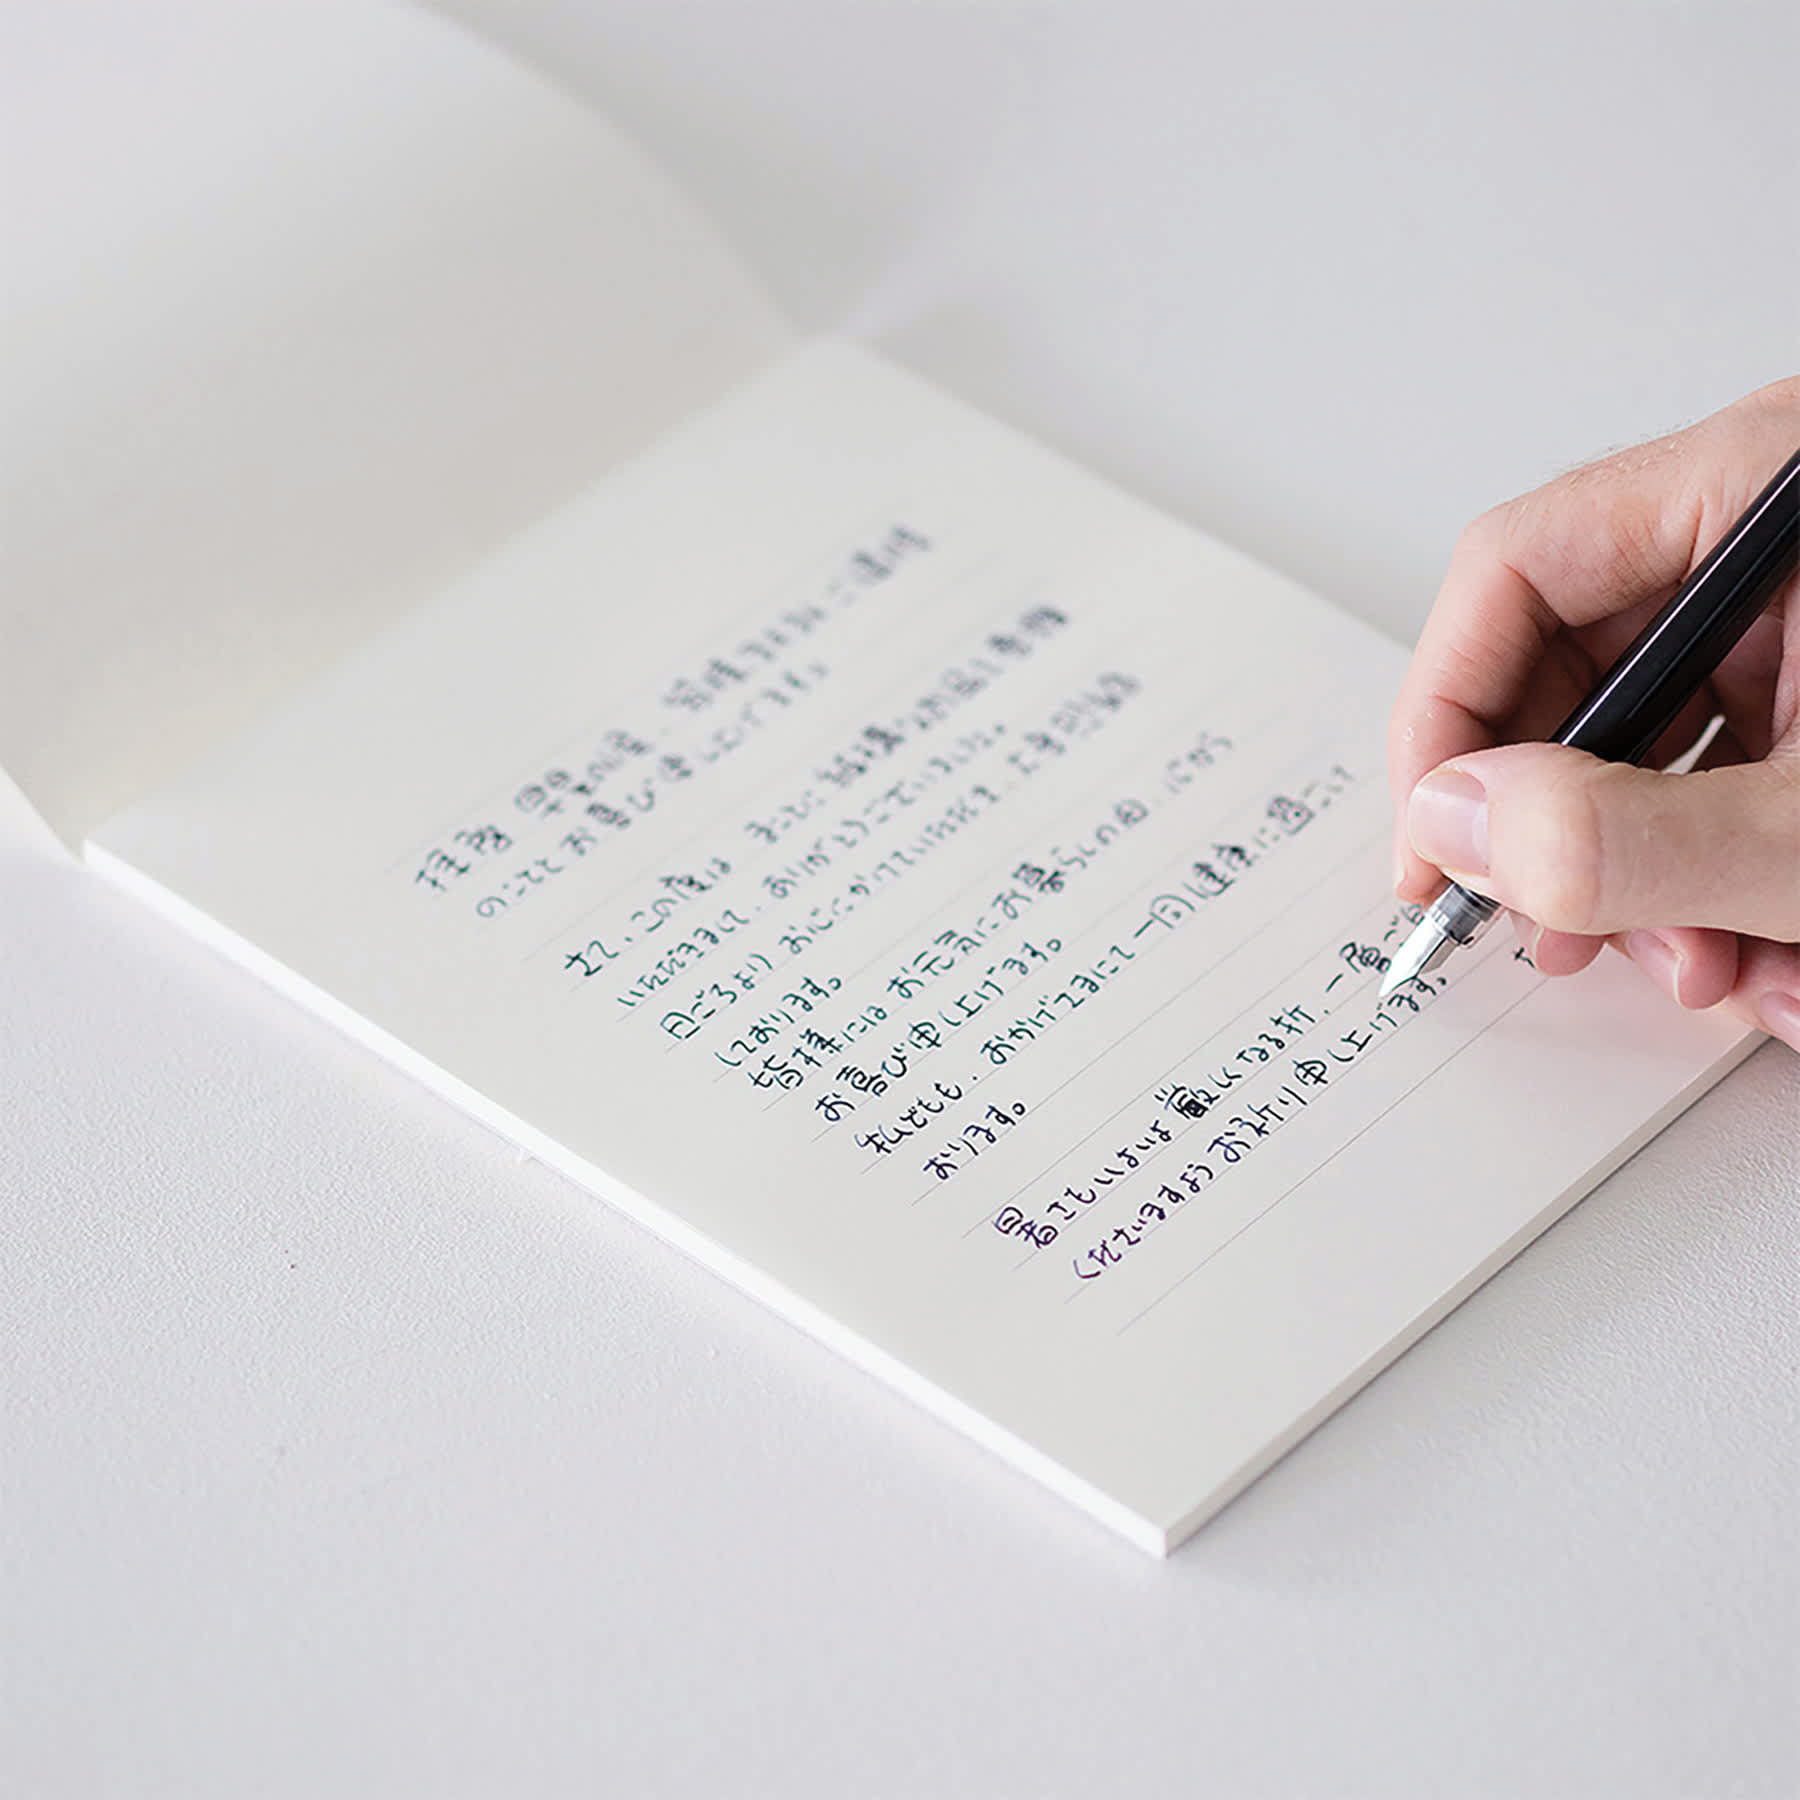 拝啓
のこととお喜び申し上げます。
さて、この度は まことに結構なお品をお贈り
いただきまして、ありがとうございました。
日ごろより お心にかけていただき、
しております。
皆様には お元気にお暮らしの由、心から
お喜び申し上げます。
私どもも、おかげさまにて 一同健康に過ごして
おります。
暑さもいよいよ 厳しくなる折、一層ご自
くださいますよう お祈り申し上げます。